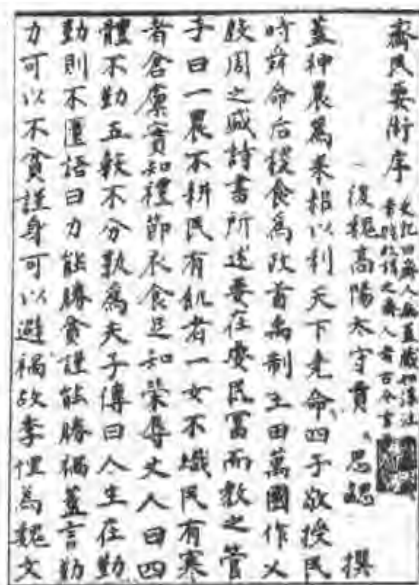 齊民要術序
史記曰齊人無蓋藏如淳注
貴賤故謂之齊人者古今言
後魏高陽太守賈 思勰 撰
蓋神農為耒耜以利天下堯命四子敬授民
時舜命后稷食為政首禹制土田萬國作乂
殷周之盛詩書所述要在安民富而教之管
子曰一農不耕民有飢者一女不織民有寒
者倉廩實知禮節衣食足知榮辱丈人曰四
體不勤五穀不分孰為夫子傳曰人生在勤
勤則不匱語曰力能勝貧謹能勝禍蓋言勤
力可以不貧謹身可以避禍故李悝為魏文